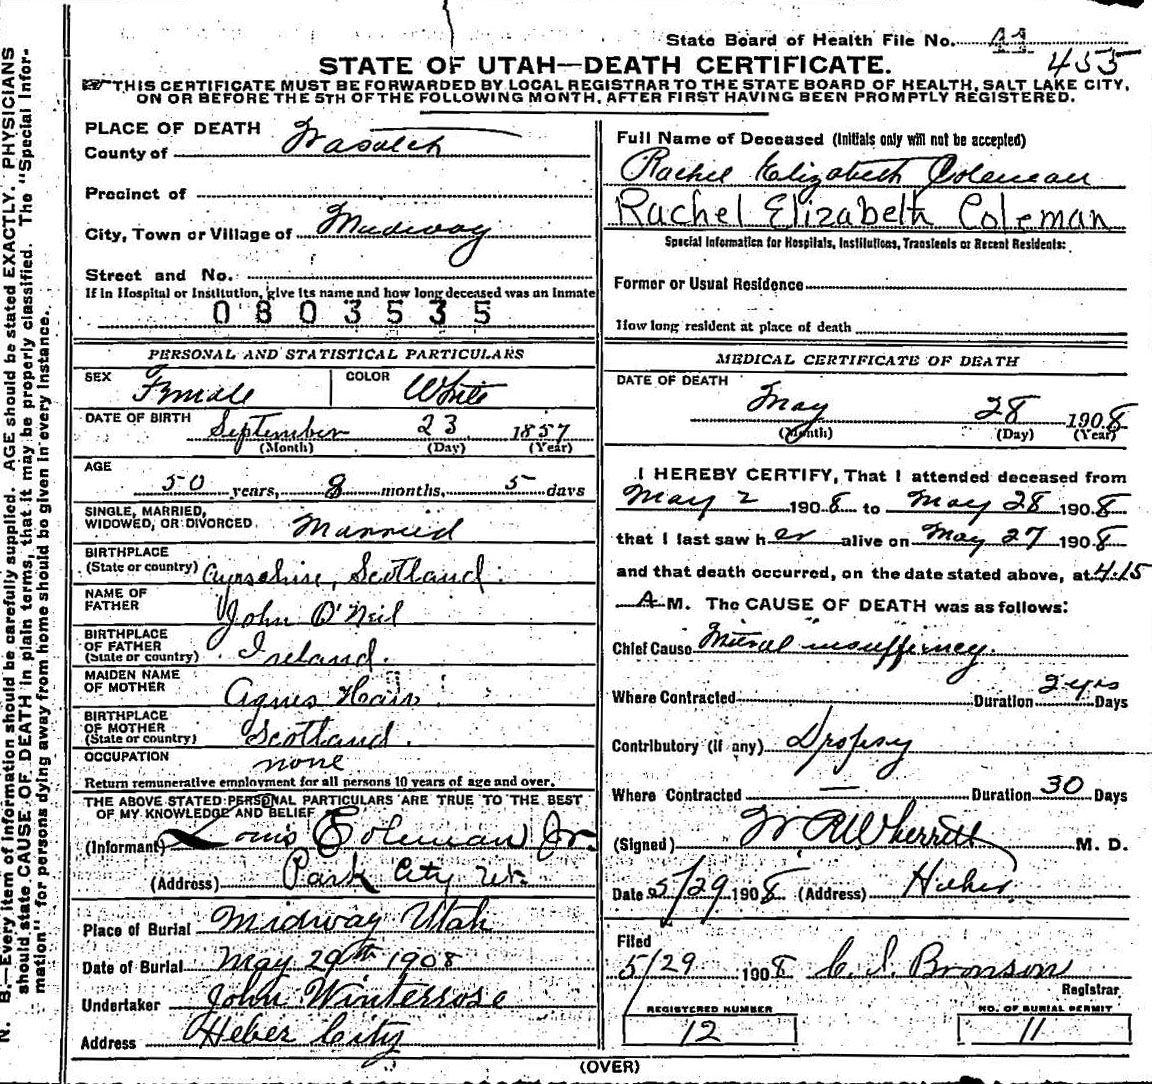 State Board of Health File No. 44
455
STATE OF UTAH—DEATH CERTIFICATE.
THIS CERTIFICATE MUST BE FORWARDED BY LOCAL REGISTRAR TO THE STATE BOARD OF HEALTH, SALT LAKE CITY,
ON OR BEFORE THE 5TH OF THE FOLLOWING MONTH, AFTER FIRST HAVING BEEN PROMPTLY REGISTERED.
N. B.—Every item of information should be carefully supplied. AGE should be stated EXACTLY. PHYSICIANS
should state CAUSE OF DEATH in plain terms, that it may be properly classified. The "Special Infor-
mation" for persons dying away from home should be given in every instance.
PLACE OF DEATH
County of Wasatch
Precinct of
City, Town or Village of Midway
Street and No.
If in Hospital or Institution, give its name and how long deceased was an Inmate
0803535
PERSONAL AND STATISTICAL PARTICULARS
SEX Female COLOR White
DATE OF BIRTH September 23 1857
(Month) (Day) (Year)
AGE
50 years, 8 months, 5 days
SINGLE, MARRIED,
WIDOWED, OR DIVORCED Married
BIRTHPLACE
(State or country) Ayrshire, Scotland.
NAME OF
FATHER John O'Neil
BIRTHPLACE
OF FATHER
(State or country) Ireland.
MAIDEN NAME
OF MOTHER Agnes Hair
BIRTHPLACE
OF MOTHER
(State or country) Scotland.
OCCUPATION none
Return remunerative employment for all persons 10 years of age and over.
THE ABOVE STATED PERSONAL PARTICULARS ARE TRUE TO THE BEST
OF MY KNOWLEDGE AND BELIEF
(Informant) Louis Coleman Jr.
(Address) Park City Ut.
Place of Burial Midway Utah
Date of Burial May 29th 1908
Undertaker John Winterrose
Address Heber City
Full Name of Deceased (Initials only will not be accepted)
Rachel Elizabeth Coleman
Rachel Elizabeth Coleman
Special Information for Hospitals, Institutions, Transients or Recent Residents:
Former or Usual Residence
How long resident at place of death
MEDICAL CERTIFICATE OF DEATH
DATE OF DEATH
May 28 1908
(Month) (Day) (Year)
I HEREBY CERTIFY, That I attended deceased from
May 2 1908 to May 28 1908
that I last saw her alive on May 27 1908
and that death occurred, on the date stated above, at 4.15
A M. The CAUSE OF DEATH was as follows:
Chief Cause Mitral insufficiency.
Where Contracted Duration 2 yrs Days
Contributory (if any) Dropsy
Where Contracted — Duration 30 Days
(Signed) W R Wherritt M. D.
Date 5/29 1908 (Address) Heber
Filed
5/29 1908 C. I. Bronson
Registrar
REGISTERED NUMBER
12
NO. OF BURIAL PERMIT
11
(OVER)